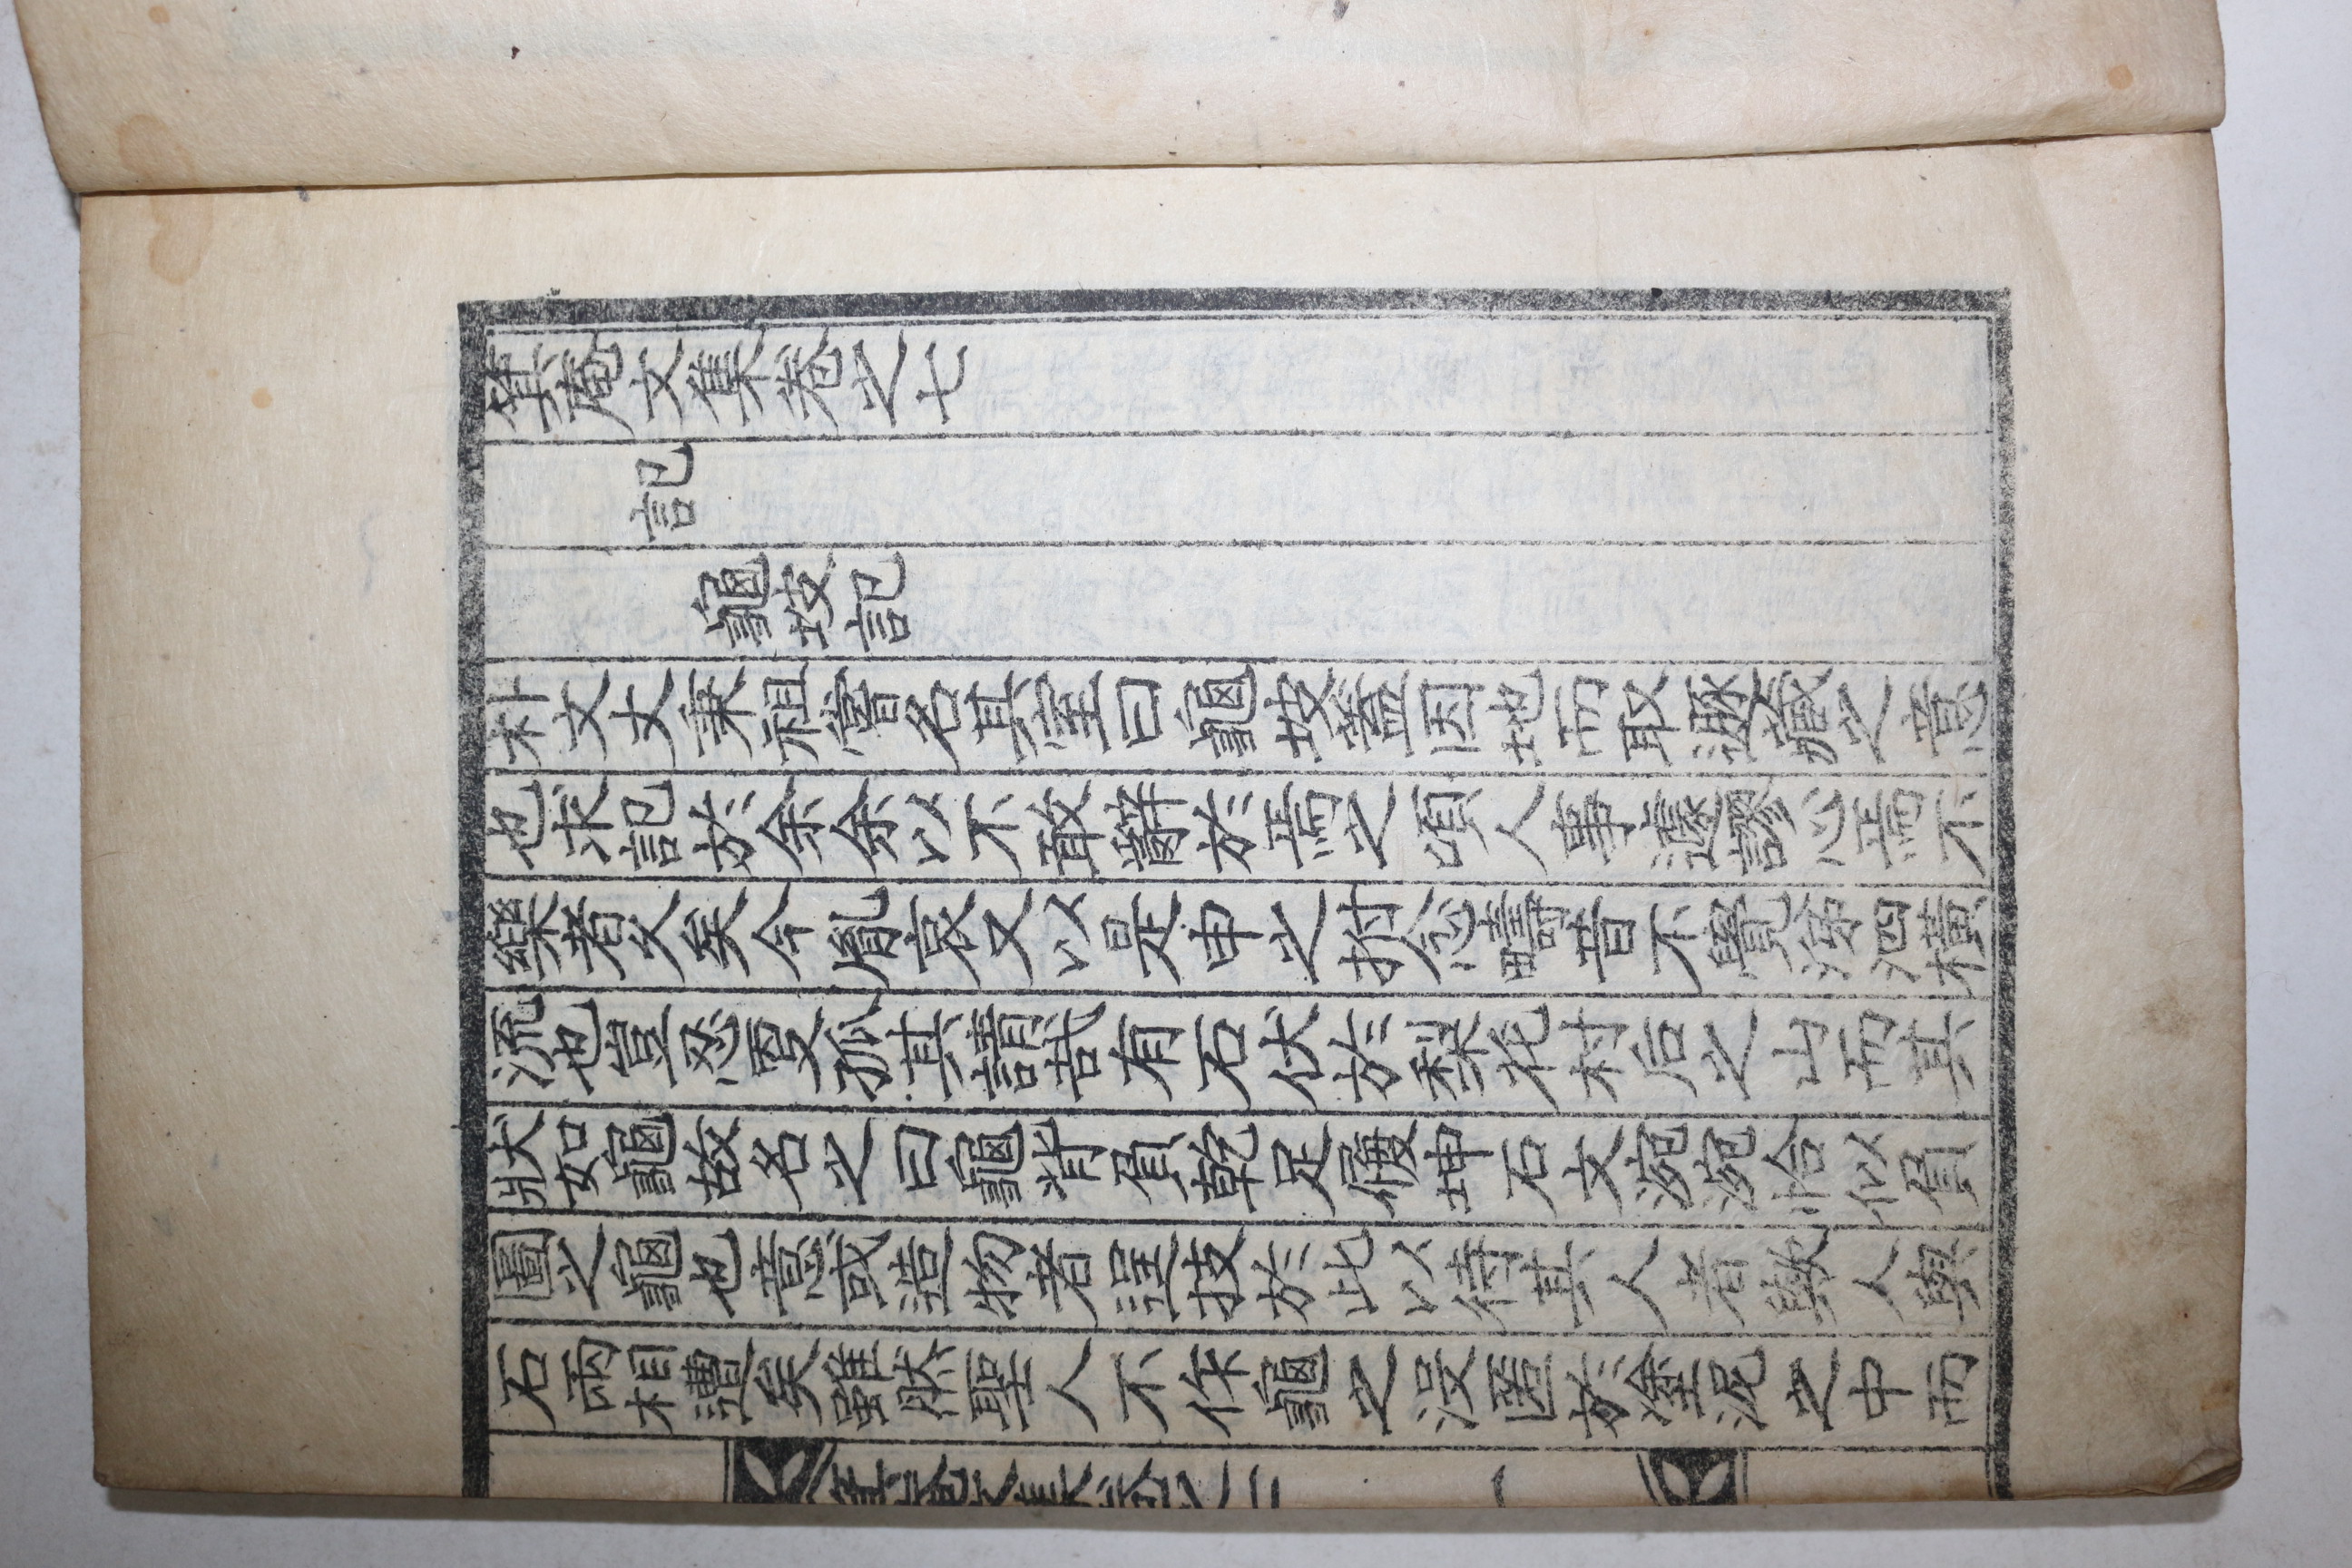 箕庵文集卷之七
記
龜坡記
朴文丈秉祖嘗名其室曰龜坡蓋因地而取遯藏之意
也求記於余余以不敢辭於焉之頃人事遽謬心焉不
樂者久矣今胤哀又以是申之拊念疇昔不覺涕泗橫
流也豈忍更孤其請哉有石伏於梨花村后之山而其
狀如龜故名之曰龜背負乾足履坤石文宛宛恰似負
圖之龜也意或造物者逞技於此以待其人者歟人與
石兩相遭矣雖然聖人不作龜之沒匿於塗泥之中而